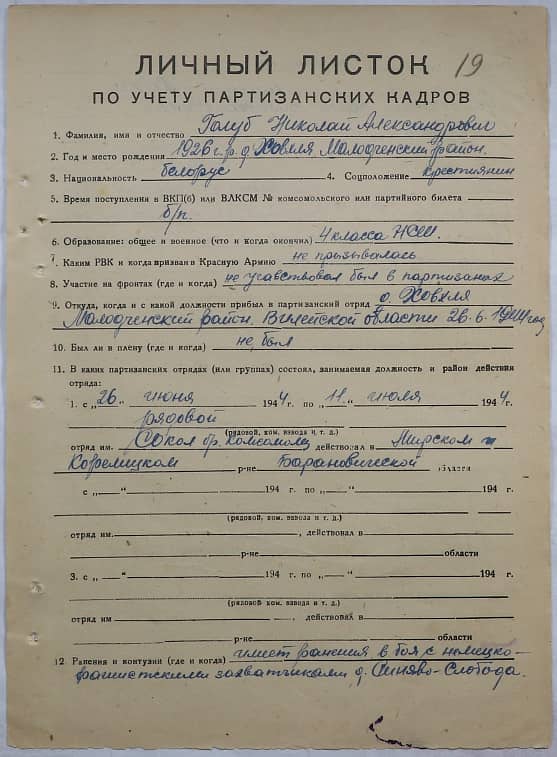 ЛИЧНЫЙ ЛИСТОК 19
ПО УЧЕТУ ПАРТИЗАНСКИХ КАДРОВ
1. Фамилия, имя и отчество Голуб Николай Александрович
2. Год и место рождения 1926 г. р. д. Ховяля Малодченский район.
3. Национальность белорус 4. Соцположение крестиянин
5. Время поступления в ВКП(б) или ВЛКСМ № комсомольского или партийного билета
б/п.
6. Образование: общее и военное (что и когда окончил) 4 класса НСШ.
7. Каким РВК и когда призван в Красную Армию не призывалась
8. Участие на фронтах (где и когда) не учавствовал был в партизанах
9. Откуда, когда и с какой должности прибыл в партизанский отряд д. Ховяля
Малодченский район. Вилейской области 26.6.1944 год
10. Был ли в плену (где и когда) не был
11. В каких партизанских отрядах (или группах) состоял, занимаемая должность и район действия
отряда:
1. с „26“ июня 1944 г. по „11“ июля 1944 г.
рядовой
(рядовой, ком. взвода и т. д.)
отряд им. Сокол бр. Комсомолец действовал в Мирском и
Корелицком р-не Барановичской области
с „—“ 194 г. по „—“ 194 г.
(рядовой, ком. взвода и т. д.)
отряд им. , действовал в
р-не области
3. с „—“ 194 г. по „—“ 194 г.
(рядовой, ком. взвода и т. д.)
отряд им , действовал в
р-не области
12. Ранения и контузии (где и когда) имеет ранения в боя с немецко-
фашистскими захватчиками д. Синяво-Слобода.